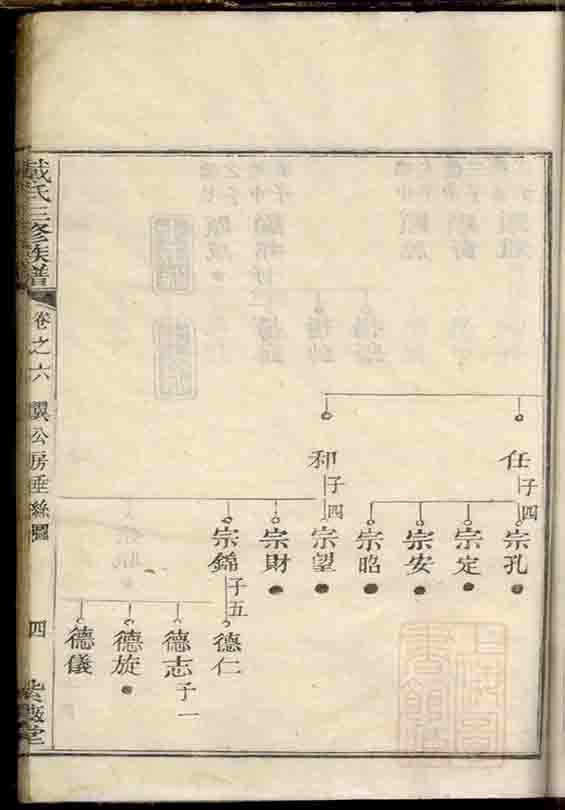 戴氏三修族譜
卷之六
翼公房垂絲圖
四
紫薇堂
任
子四
和
子四
宗孔
宗定
宗安
宗昭
宗望
宗財
宗錦
子五
德仁
德志
子一
德旋
德儀
上海圖書館藏